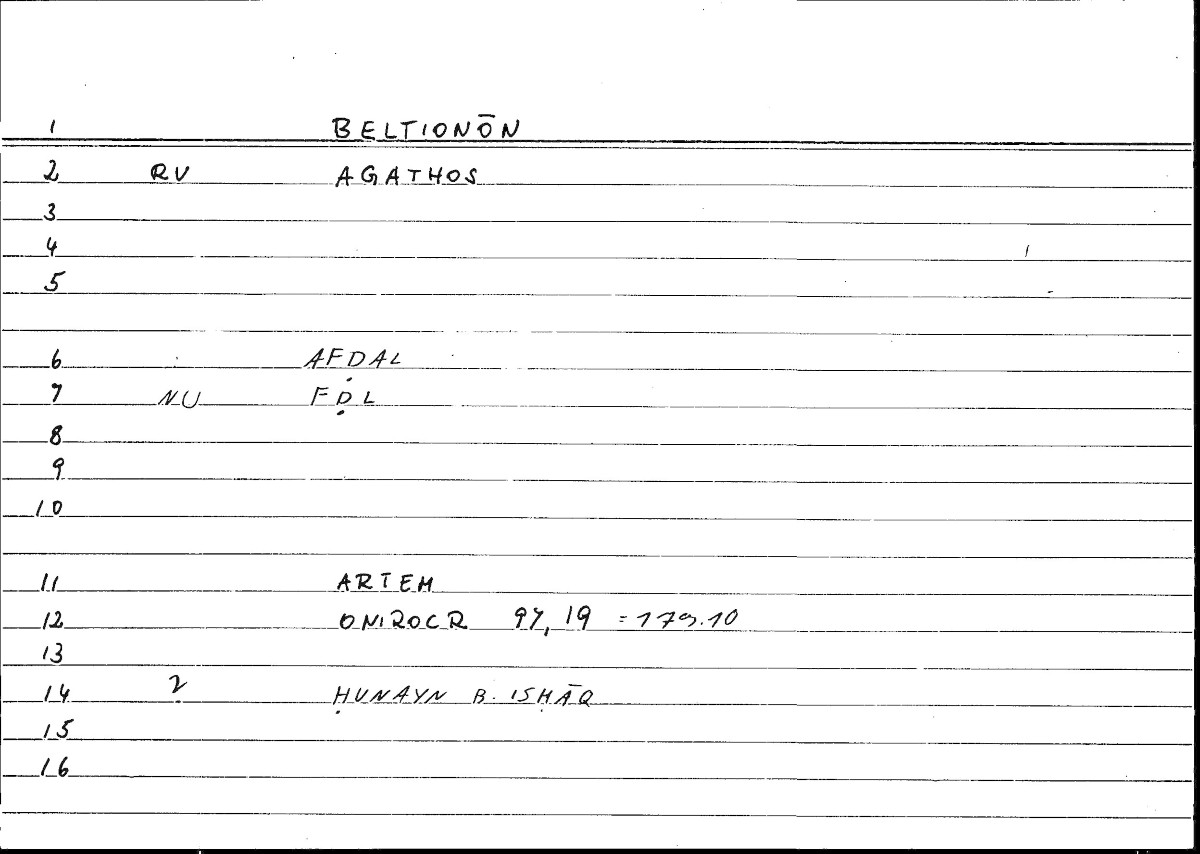 1 BELTIONŌN
2 RV AGATHOS
3
4
5
6 AFḌAL
7 NU FḌL
8
9
10
11 ARTEM
12 ONIROCR 97, 19 = 179.10
13
14 2 ḤUNAYN B. ISḤĀQ
15
16